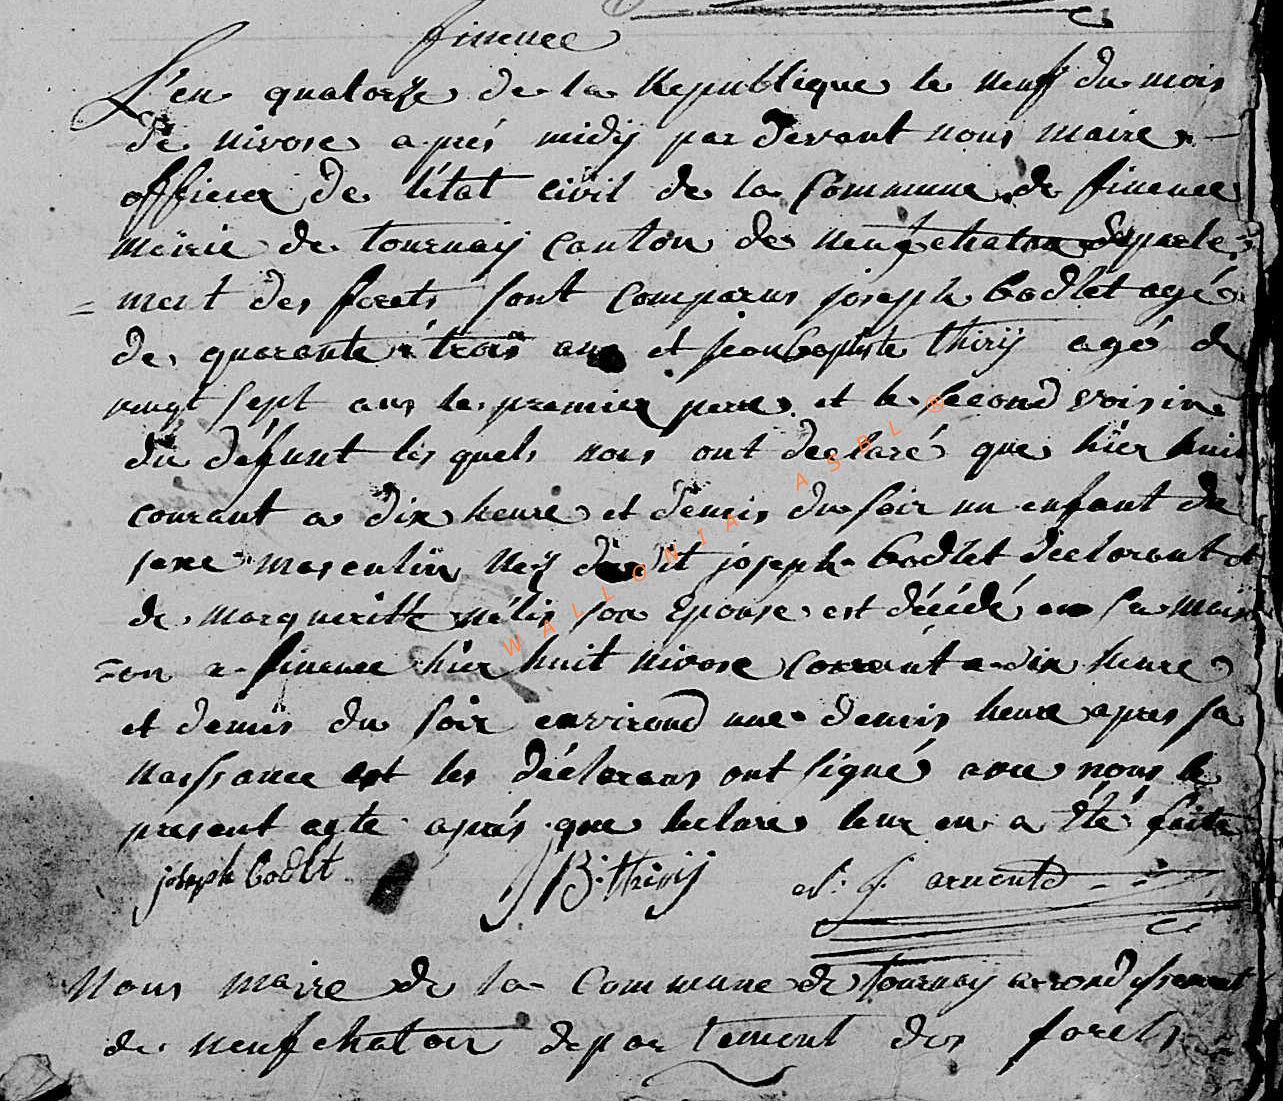 finenee
L'en quatorze de la Republique le neuf du mois
de nivose aprés midij par devant nous maire
officier de l'état civil de la Commune de finenee
mérie de tournaij canton de neufchatau departe=
=ment des forets sont Comparus joseph bodlet agé
de quarante trois ans et jeanbaptiste thirij agé de
vingt sept ans le premier pere et le second voisin
du défunt les quels nous ont declaré que hier huit
courant a dix heure et demis du soir un enfant de
sexe masculin neij dudit joseph bodlet déclarant et
de margueritte mélis son Epouse est décédé en sa mais
=on a finenee hier huit nivose Corrant a dix heure
et demis du soir environd une demis heure apres sa
naissance et les déclarans ont signé avec nous le
present acte aprés que lecture leur en a été faite
joseph bodlt JB: thirij arnould
WALLONIA ASBL ®
Nous maire de la Commune de tournaij arrondissement
de neufchatau departement des forets